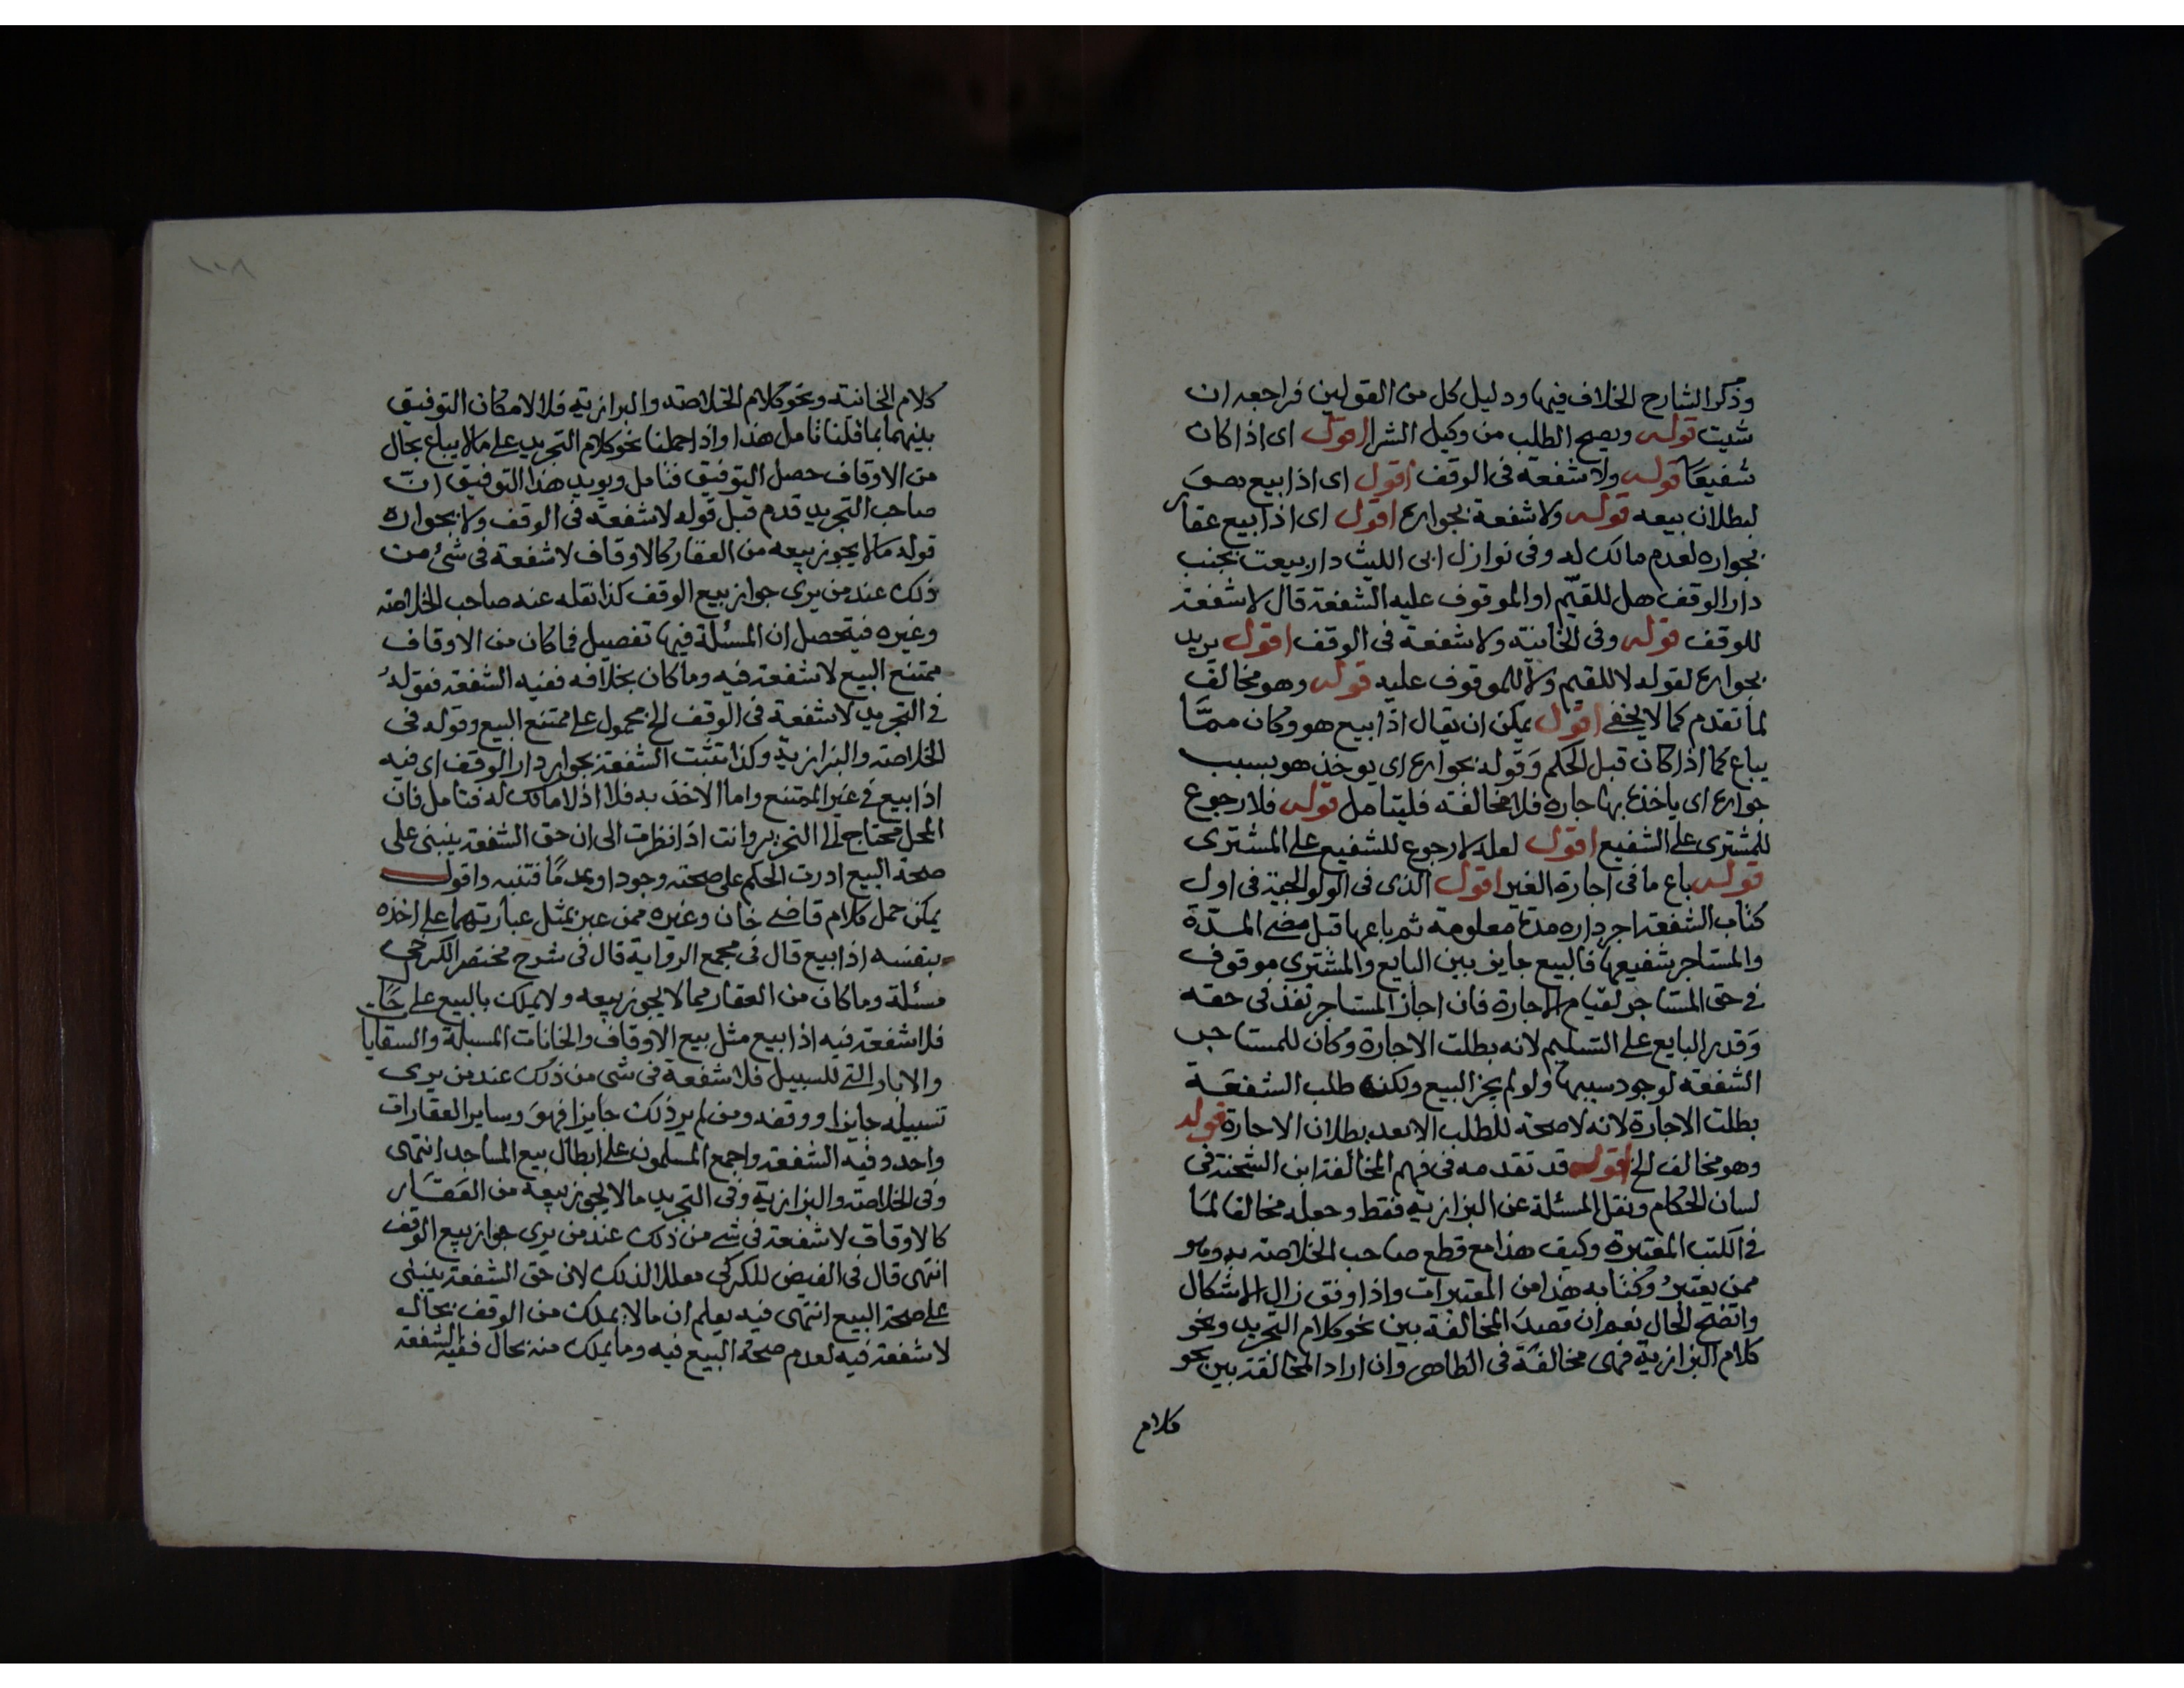 وذكر الشارح الخلاف فيها ودليل كل من القولين فراجعه ان
شيت قوله ويصح الطلب من وكيل الشرا اقول اى اذا كان
شفيعا قوله ولا شفعة فى الوقف اقول اى اذا بيع
لبطلان بيعه قوله ولا شفعة بجواره اقول اى اذا بيع عقار
بجواره لعدم مالك له وفى نوازل ابى الليث دار بيعت بجنب
دار الوقف هل للقيّم او الموقوف عليه الشفعة قال لا شفعة
للوقف قوله وفى الخانية ولا شفعة فى الوقف اقول يريد
بجواره لقوله لا للقيم ولا للموقوف عليه قوله وهو مخالف
لما تقدم كما لا يخفى اقول يمكن ان يقال اذا بيع هو وكان ممّا
يباع كما اذا كان قبل الحكم وقوله بجواره اى يوخذ هو بسبب
جواره اى ياخذه بها جاره فلا مخالفة فليتامل قوله فلا رجوع
للمشترى على الشفيع اقول لعله لا رجوع للشفيع على المشترى
قوله باع ما فى اجارة الغير اقول الذى فى الولوالجية فى اول
كتاب الشفعة اجر داره مدة معلومة ثم باعها قبل مضى المدّة
والمستاجر شفيعها فالبيع جايز بين البايع والمشترى موقوف
فى حق المستاجر لقيام الاجارة فان اجاز المستاجر نفذ فى حقه
وقدر البايع على التسليم لانه بطلت الاجارة وكان للمستاجر
الشفعة لوجود سببها ولو لم يجز البيع ولكنه طلب الشفعة
بطلت الاجارة لانه لا صحة للطلب الا بعد بطلان الاجارة قوله
وهو مخالف الخ اقول قد تقدمه فى فهم المخالفة ابن الشحنة فى
لسان الحكام ونقل المسئلة عن البزازية فقط وجعله مخالفا لما
فى الكتب المعتبرة وكيف هذا مع قطع صاحب الخلاصة به وهو
ممن يعتبر وكتابه هذا من المعتبرات واذا وفق زال الاشكال
واتضح الحال نعم ان قصد المخالفة بين نحو كلام التجريد ونحو
كلام البزازية فهى مخالفة فى الظاهر وان اراد المخالفة بين نحو
كلام
١٠٨
كلام الخانية ونحو كلام الخلاصة والبزازية فلا لامكان التوفيق
بينهما بما قلنا تامل هذا واذا حملنا نحو كلام التجريد على مالا يباع بحال
من الاوقاف حصل التوفيق فتامل ويويد هذا التوفيق ان
صاحب التجريد قدم قبل قوله لا شفعة فى الوقف ولا بجواره
قوله مالا يجوز بيعه من العقار كالاوقاف لا شفعة فى شئ من
ذلك عند من يرى جواز بيع الوقف كذا نقله عنه صاحب الخلاصة
وغيره فيتحصل ان المسئلة فيها تفصيل فما كان من الاوقاف
ممتنع البيع لا شفعة فيه وما كان بخلافه ففيه الشفعة فقوله
فى التجريد لا شفعة فى الوقف الخ محمول على ممتنع البيع وقوله فى
الخلاصة والبزازية وكذا تثبت الشفعة بجوار دار الوقف اى فيه
اذا بيع فى غير الممتنع واما الاخذ به فلا اذ لا مالك له فتامل فان
المحل محتاج الى التحرير وانت اذا نظرت الى ان حق الشفعة ينبنى على
صحة البيع ادرت الحكم على صحته وجودا وعدمًا فتنبه واقول
يمكن حمل كلام قاضى خان وغيره ممن عبر بمثل عبارتهما على اخذه
بنفسه اذا بيع قال فى مجمع الرواية قال فى شرح مختصر الكرخى
مسئلة وما كان من العقار مما لا يجوز بيعه ولا يملك بالبيع على حال
فلا شفعة فيه اذا بيع مثل بيع الاوقاف والخانات المسبلة والسقايا
والابار التى للسبيل فلا شفعة فى شى من ذلك عند من يرى
تسبيله جايزا ووقفه ومن لم ير ذلك جايزا فهو وساير العقارات
واحد وفيه الشفعة واجمع المسلمون على ابطال بيع المساجد انتهى
وفى الخلاصة والبزازية وفى التجريد مالا يجوز بيعه من العقار
كالاوقاف لا شفعة فى شى من ذلك عند من يرى جواز بيع الوقف
انتهى قال فى الفيض للكركى معللا لذلك لان حق الشفعة ينبنى
على صحة البيع انتهى فيه يعلم ان مالا يملك من الوقف بحال
لا شفعة فيه لعدم صحة البيع فيه وما يملك منه بحال ففيه الشفعة